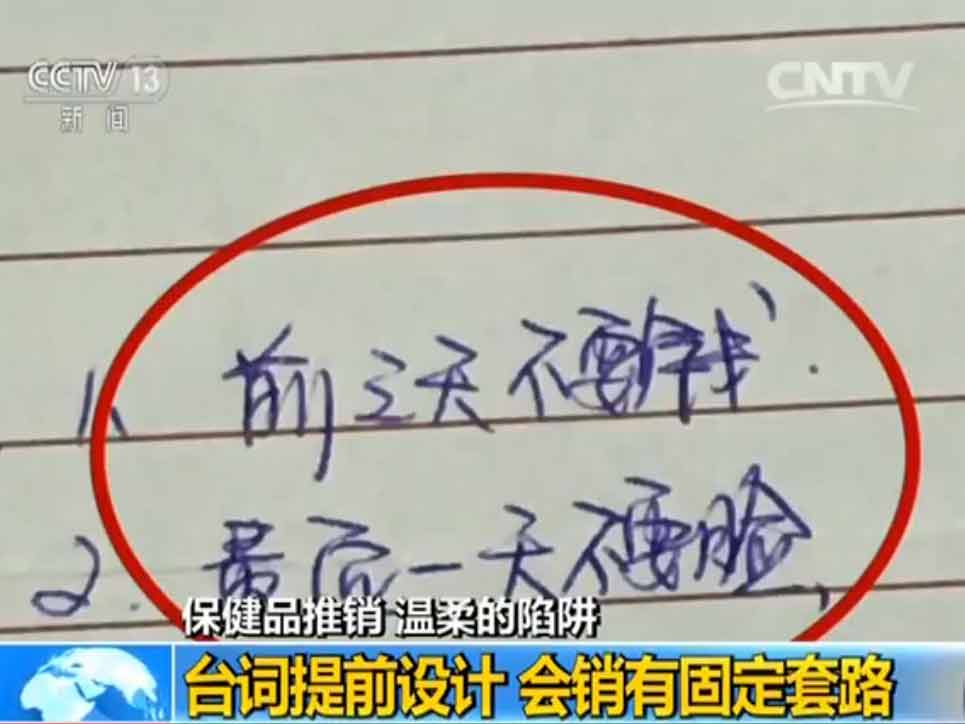 CCTV 13
新闻
CNTV
1. 前三天不要钱.
2. 最后一天不要脸
保健品推销 温柔的陷阱
台词提前设计 会销有固定套路